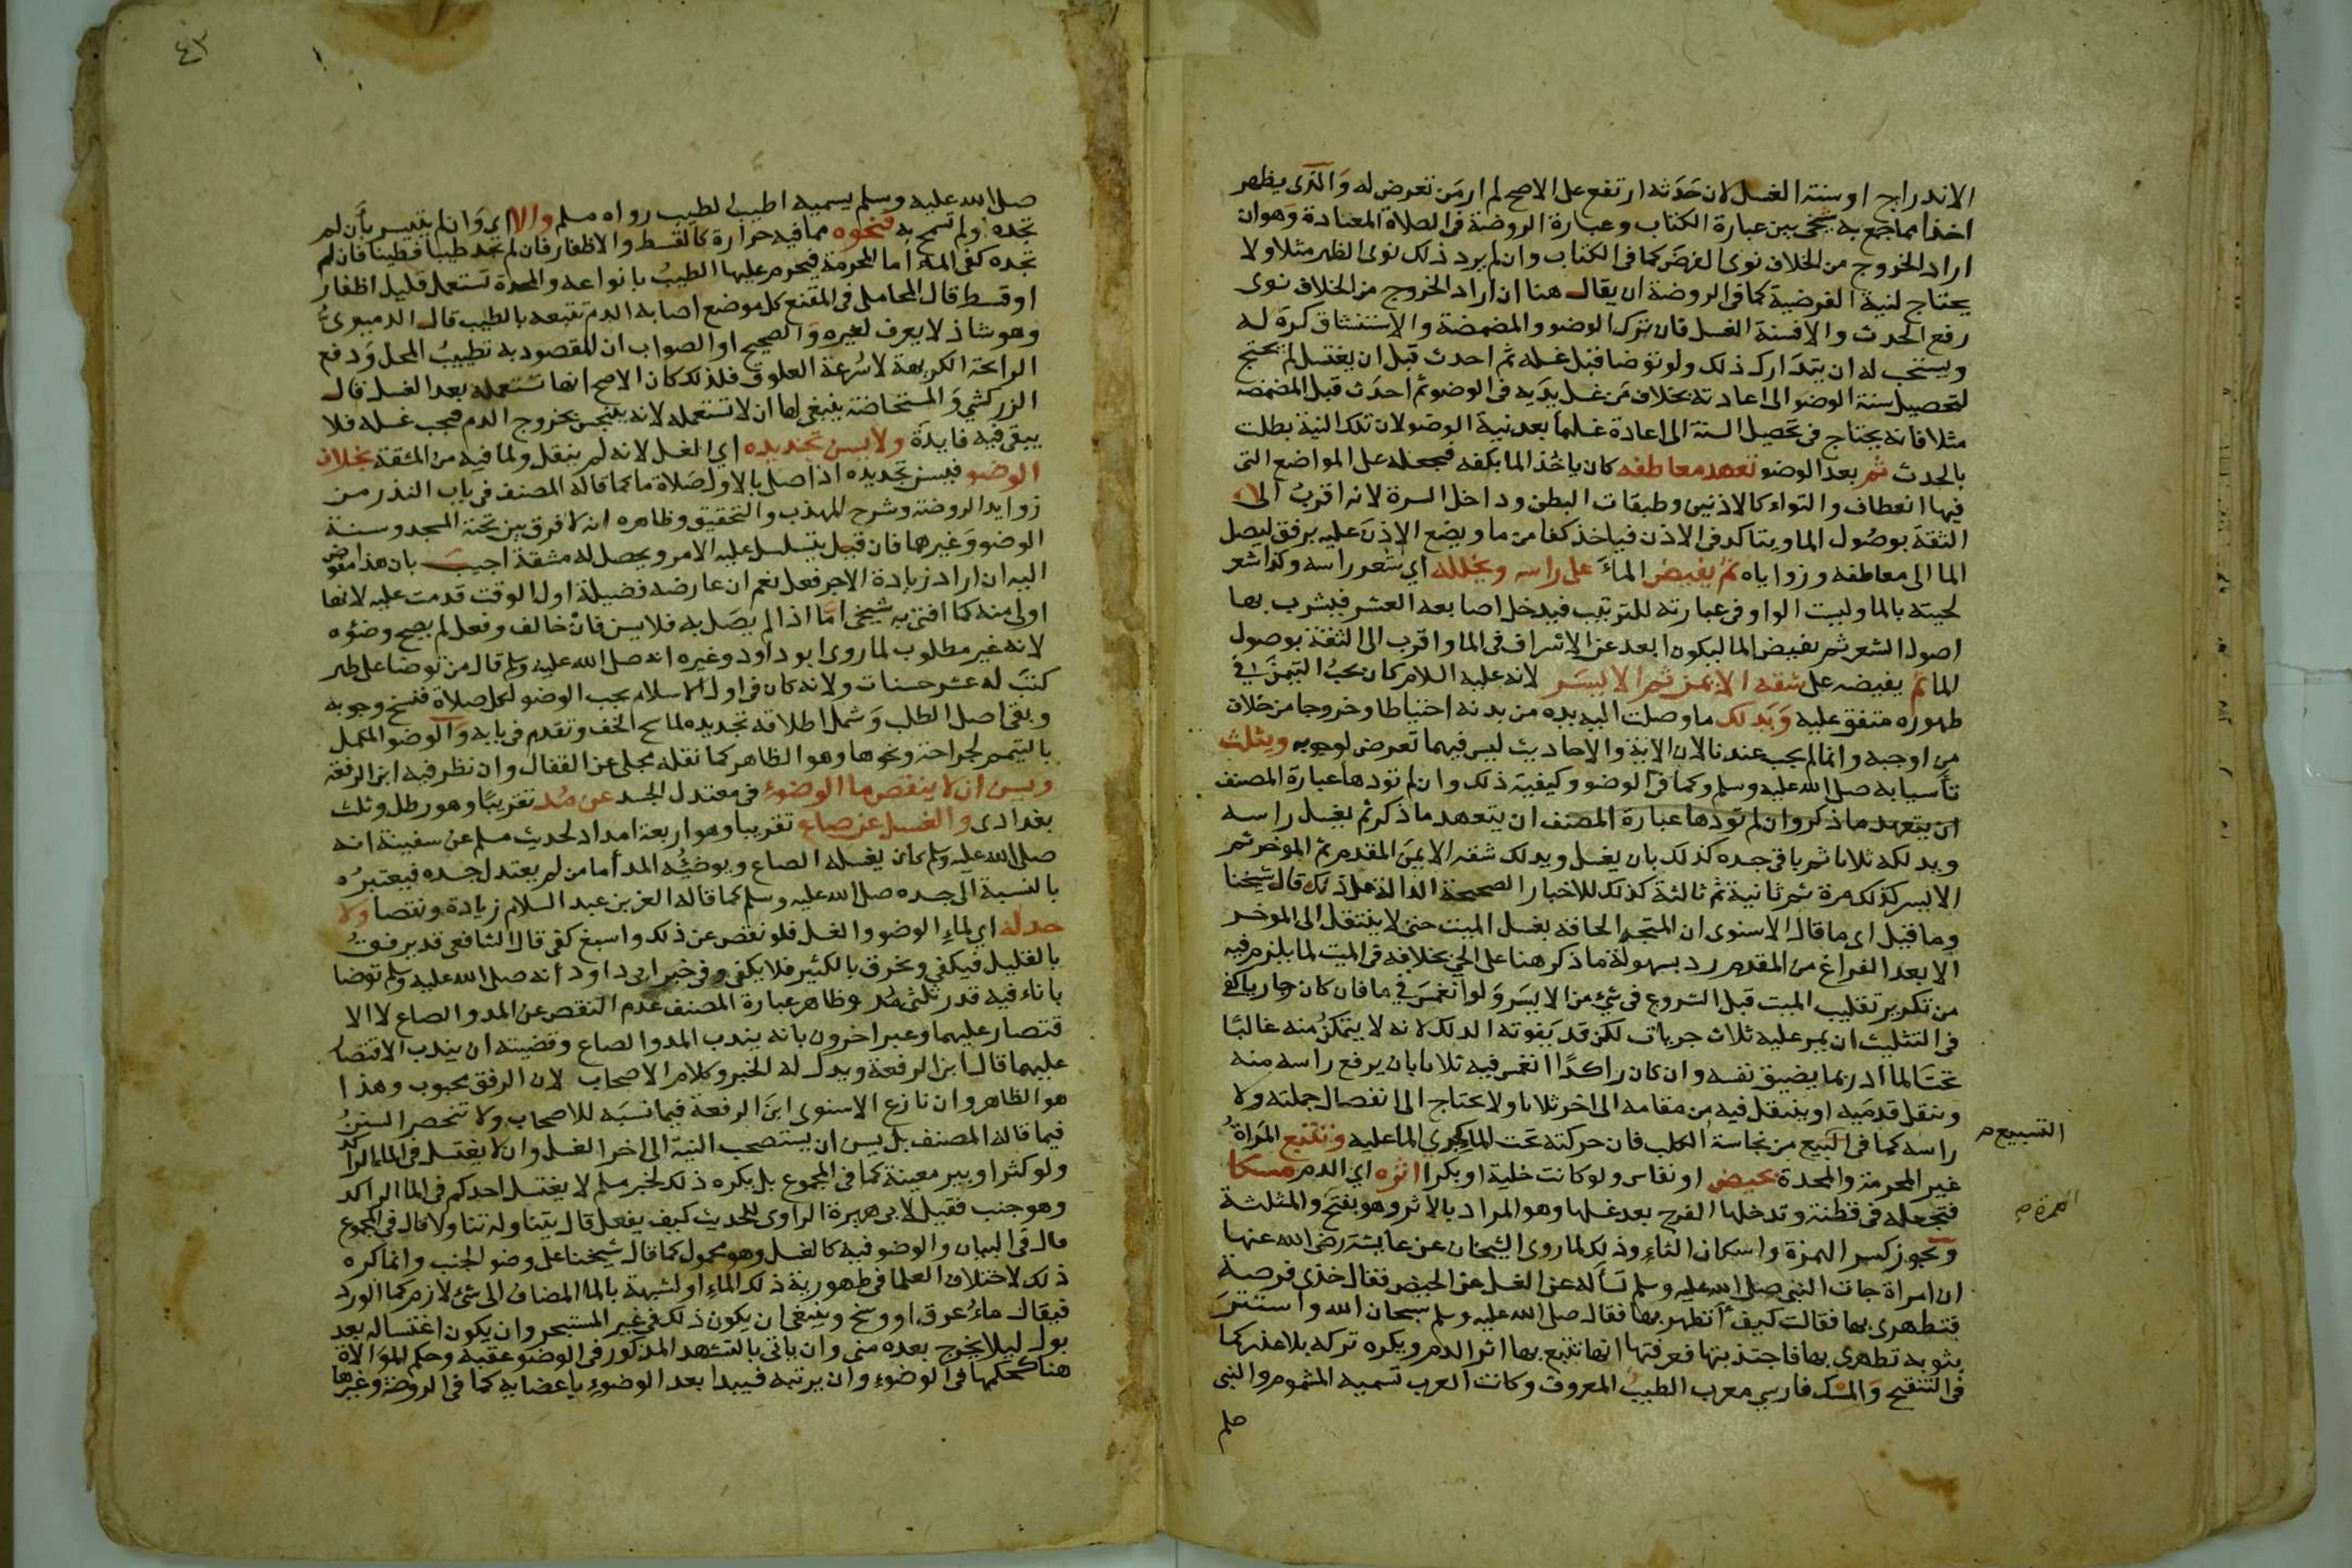 الاندراج او سنة الغسل لان حدثه ارتفع على الاصح لم ار من تعرض له والذي يظهر
اخذا مما جمع به شيخي بين عبارة الكتاب وعبارة الروضة في الصلاة المعادة وهو ان
اراد الخروج من الخلاف نوى الفرض كما في الكتاب وان لم يرد ذلك نوى الظهر مثلا ولا
يحتاج لنية الفرضية كما في الروضة ان يقال هنا ان اراد الخروج من الخلاف نوى
رفع الحدث والا فسنة الغسل فان ترك الوضو والمضمضة والاستنشاق كره له
ويستحب له ان يتدارك ذلك ولو توضا قبل غسله ثم احدث قبل ان يغتسل لم يحتج
لتحصيل سنة الوضو الى اعادته بخلاف من غسل يديه في الوضو ثم احدث قبل المضمضه
مثلا فانه يحتاج في تحصيل السنة الى اعادة غسلهما بعد نية الوضو لان تلك النية بطلت
بالحدث ثم بعد الوضو تعهد معاطفه كان ياخذ الما بكفه فيجعله على المواضع التي
فيها انعطاف والتواء كالاذنين وطبقات البطن وداخل السرة لانه اقرب الى
الثقة بوصول الما ويتاكد في الاذن فياخذ كفا من ما ويضع الاذن عليه برفق ليصل
الما الى معاطفه وزواياه ثم يفيض الماء على راسه ويخلله اي شعر راسه وكذا شعر
لحيته بالما وليت الواو في عبارته للترتيب فيدخل اصابعه العشر فيشرب بها
اصول الشعر ثم يفيض الما ليكون ابعد عن الاسراف في الما واقرب الى الثقة بوصول
الما ثم يفيضه على شقه الايمن ثم الايسر لانه عليه السلام كان يحب التيمن في
طهوره متفق عليه ويدلك ما وصلت اليه يده من بدنه احتياطا وخروجا من خلاف
من اوجبه وانما لم يجب عندنا لان الاية والاحاديث ليس فيهما تعرض لوجوبه ويثلث
تأسيا به صلى الله عليه وسلم وكما في الوضو وكيفية ذلك وان لم تؤدها عبارة المصنف
ان يتعهد ما ذكر وان لم تؤدها عبارة المصنف ان يتعهد ما ذكر ثم يغسل راسه
ويدلكه ثلاثا ثم باقي جسده كذلك بان يغسل ويدلك شقه الايمن المقدم ثم الموخر ثم
الايسر كذلك مرة ثم ثانية ثم ثالثة كذلك للاخبار الصحيحة الدالة على ذلك قال شيخنا
وما قيل اي ما قال الاسنوى ان المتجه الحاقه بغسل الميت حتى لا ينتقل الى الموخر
الا بعد الفراغ من المقدم رد بسهولة ما ذكر هنا على الحي بخلافه في الميت لما يلزم فيه
من تكرير تقليب الميت قبل الشروع في شئ من الايسر ولو انغمس في ما فان كان جاريا كفى
في التثليث ان يمر عليه ثلاث جريات لكن قد يفوته الدلك لانه لا يتمكن منه غالبا
تحت الما اذ ربما يضيق نفسه وان كان راكدا انغمس فيه ثلاثا بان يرفع راسه منه
وينقل قدميه او ينتقل فيه من مقامه الى اخر ثلاثا ولا يحتاج الى انفصال جملته ولا
راسه كما في التسبيع من نجاسة الكلب فان حركته تحت الما كجري الما عليه وتتبع المراة
التسبيع صح
غير المحرمة والمحدة بحيض او نفاس ولو كانت خلية او بكرا اثره اي الدم مسكا
فتجعله في قطنة وتدخلها الفرج بعد غسلها وهو المراد بالاثر وهو بفتح والمثلثة
الهمزة صح
ويجوز كسر الهمزة واسكان الثاء وذلك لما روى الشيخان عن عايشة رضي الله عنها
ان امراة جات النبي صلى الله عليه وسلم تسأله عن الغسل من الحيض فقال خذي فرصة
فتطهري بها فقالت كيف أتطهر بها فقال صلى الله عليه وسلم سبحان الله واستتر
بثوبه تطهري بها فاجتذبتها فعرفتها انها تتبع بها اثر الدم ويكره تركه بلا عذر كما
في التنقيح والمسك فارسي معرب الطيب المعروف وكانت العرب تسميه المشموم والنبي
صلى
٤٣
صلى الله عليه وسلم يسميه اطيب الطيب رواه مسلم والا اي وان لم يتيسر بأن لم
تجده او لم تسمح به فنحوه مما فيه حرارة كالقسط والاظفار فان لم تجد طيبا فطينا فان لم
تجده كفى الماء اما المحرمة فيحرم عليها الطيب بانواعه والمحدة تستعمل قليل اظفار
او قسط قال المحاملي في المقنع كل موضع اصابه الدم تتبعه بالطيب قال الدميري
وهو شاذ لا يعرف لغيره والصحيح او الصواب ان المقصود به تطييب المحل ودفع
الرائحة الكريهة لا سرعة العلوق فلذلك كان الاصح انها تستعمله بعد الغسل قال
الزركشي والمستحاضة ينبغي لها ان لا تستعمله لانه يتنجس بخروج الدم فيجب غسله فلا
يبقى فيه فايدة ولا يسن تجديده اي الغسل لانه لم ينقل ولما فيه من المشقة بخلاف
الوضو فيسن تجديده اذا صلى بالاول صلاة ما كما قاله المصنف في باب النذر من
زوايد الروضة وشرح المهذب والتحقيق وظاهره انه لا فرق بين تحية المسجد وسنة
الوضو وغيرهما فان قيل يتسلسل عليه الامر ويحصل له مشقة اجيب بان هذا مفوض
اليه ان اراد زيادة الاجر فعل نعم ان عارضه فضيلة اول الوقت قدمت عليه لانها
اولى منه كما افتى به شيخي اما اذا لم يصل به فلا يسن فان خالف وفعل لم يصح وضؤه
لانه غير مطلوب لما روى ابو داود وغيره انه صلى الله عليه وسلم قال من توضا على طهر
كتب له عشر حسنات ولانه كان في اول الاسلام يجب الوضو لكل صلاة فنسخ وجوبه
وبقي اصل الطلب وشمل اطلاقه تجديده لماسح الخف وتقدم في بابه والوضو المكمل
بالتيمم لجراحة ونحوها وهو الظاهر كما نقله مجلي عن القفال وان نظر فيه ابن الرفعة
ويسن ان لا ينقص ما الوضوء في معتدل الجسد عن مد تقريبا وهو رطل وثلث
بغدادى والغسل عن صاع تقريبا وهو اربعة امداد لحديث مسلم عن سفينة انه
صلى الله عليه وسلم كان يغسله الصاع ويوضئه المد أما من لم يعتدل جسده فيعتبر
بالنسبة الى جسده صلى الله عليه وسلم كما قاله العز بن عبد السلام زيادة ونقصا ولا
حد له اي لماء الوضو والغسل فلو نقص عن ذلك واسبغ كفى قال الشافعي قد يرفق
بالقليل فيكفي ويخرق بالكثير فلا يكفي وفي خبر ابى داود أنه صلى الله عليه وسلم توضا
باناء فيه قدر ثلثي مد وظاهر عبارة المصنف عدم النقص عن المد والصاع لا الا
قتصار عليهما وعبر اخرون بانه يندب المد والصاع وقضيته ان يندب الاقتصار
عليهما قال ابن الرفعة ويدل له الخبر وكلام الاصحاب لان الرفق محبوب وهذا
هو الظاهر وان نازع الاسنوى ابن الرفعة فيما نسبه للاصحاب ولا تنحصر السنن
فيما قاله المصنف بل يسن ان يستصحب النية الى اخر الغسل وان لا يغتسل في الماء الراكد
ولو كثر او بير معينة كما في المجموع بل يكره ذلك لخبر مسلم لا يغتسل احدكم في الما الراكد
وهو جنب فقيل لابى هريرة الراوى للحديث كيف يفعل قال يتناوله تناولا قال في المجموع
قال في البيان والوضو فيه كالغسل وهو محمول كما قال شيخنا على وضو الجنب وانما كره
ذلك لاختلاف العلما في طهورية ذلك الماء او لشبهه بالما المضاف الى شئ لازم كما الورد
فيقال ماء عرق او وسخ وينبغي ان يكون ذلك في غير المستبحر وان يكون اغتساله بعد
بول ليلا يخرج بعده مني وان ياتى بالتشهد المذكور في الوضو عقبه وحكم الموالاة
هنا كحكمها في الوضوء وان يرتبه فيبدا بعد الوضوء باعضايه كما في الروضة وغيرها